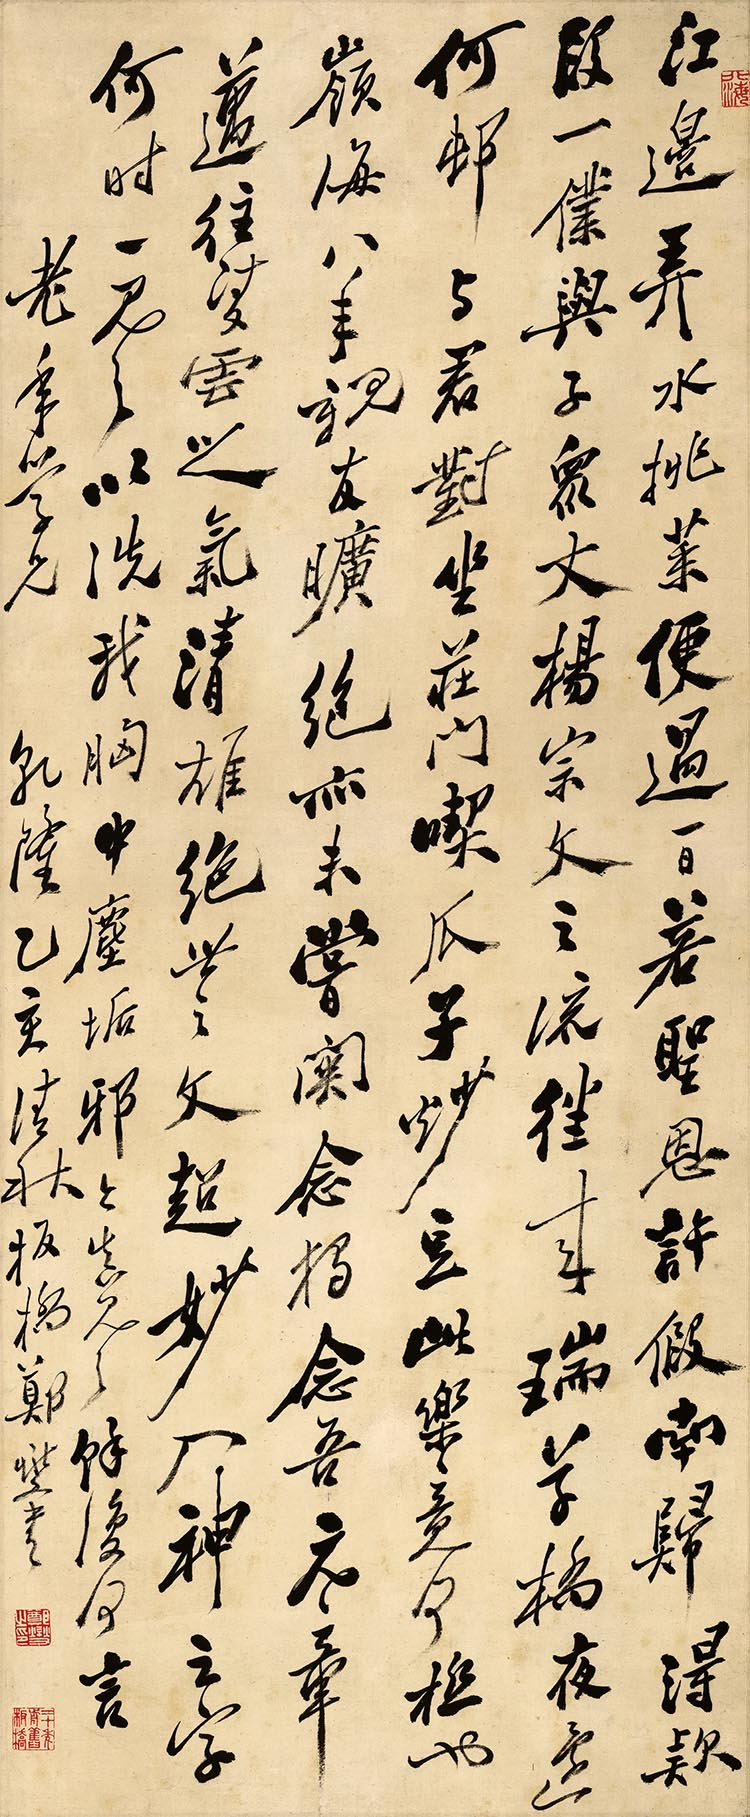 江邊弄水挑菜便過一日若聖恩許假南歸得款
段一僕與子眾丈楊宗文之流往來瑞草橋夜還
何邨与君對坐莊門喫瓜子炒豆此樂竟何極也
嶺海八年親友曠絕亦未嘗關念獨念吾元章
邁往凌雲之氣清雄絕世之文超妙入神之字
何时一見之以洗我胸中塵垢邪今真見之餘復何言
老年學兄
乾隆乙亥清秋板橋鄭燮書